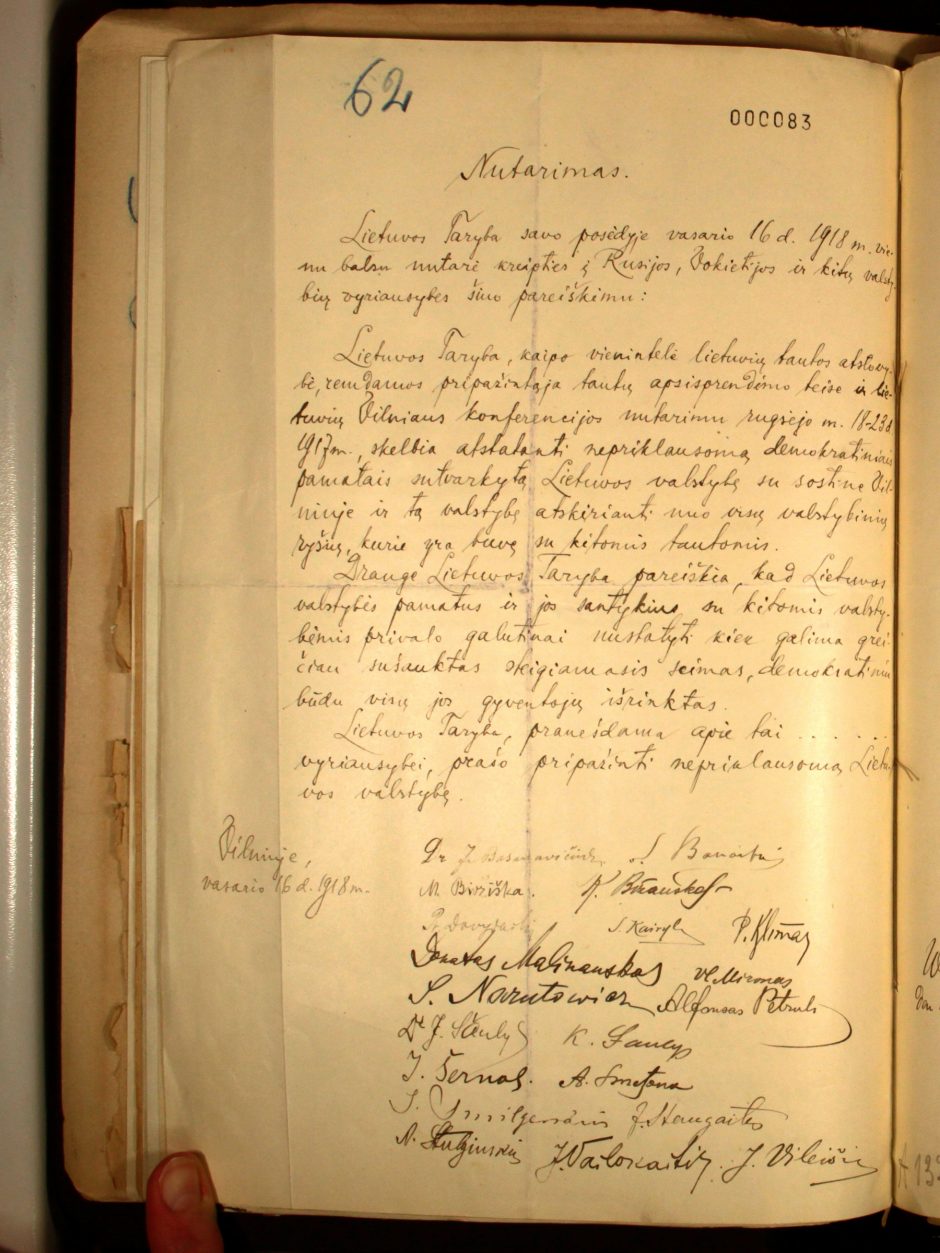 62
000083
Nutarimas.
Lietuvos Taryba savo posėdyje vasario 16 d. 1918 m. vie-
nu balsu nutarė kreipties į Rusijos, Vokietijos ir kitų valsty-
bių vyriausybes šiuo pareiškimu:
Lietuvos Taryba, kaipo vienintelė lietuvių tautos atstovy-
bė, remdamos pripažintąja tautų apsisprendimo teise ir lie-
tuvių Vilniaus konferencijos nutarimu rugsėjo m. 18-23 d.
1917 m., skelbia atstatanti nepriklausomą demokratiniais
pamatais sutvarkytą Lietuvos valstybę su sostine Vil-
niuje ir tą valstybę atskirianti nuo visų valstybinių
ryšių, kurie yra buvę su kitomis tautomis.
Drauge Lietuvos Taryba pareiškia, kad Lietuvos
valstybės pamatus ir jos santykius su kitomis valsty-
bėmis privalo galutinai nustatyti kiek galima grei-
čiau sušauktas steigiamasis seimas, demokratiniu
būdu visų jos gyventojų išrinktas.
Lietuvos Taryba, pranešdama apie tai . . . . . .
vyriausybei, prašo pripažinti nepriklausomą Lietu-
vos valstybę.
Vilniuje,
vasario 16 d. 1918 m.
Dr J. Basanavičius S. Banaitis
M. Biržiška. K. Bizauskas
Pr. Dovydaitis S. Kairys P. Klimas
Donatas Malinauskas Vl Mironas
S. Narutowicz Alfonsas Petrulis
Dr J. Šaulys K. Šaulys
J. Šernas. A. Smetona
J. Smilgevičius J. Staugaitis
A. Stulginskis J. Vailokaitis. J. Vileišis